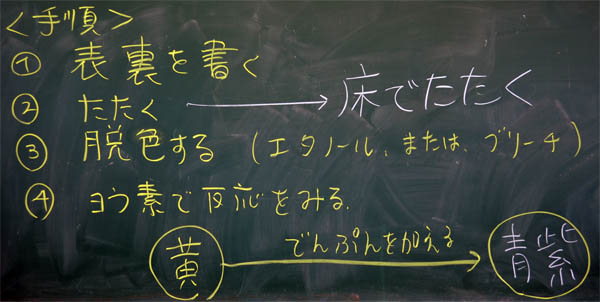 ＜手順＞
① 表裏を書く
② たたく → 床でたたく
③ 脱色する (エタノール、または、ブリーチ)
④ ヨウ素で反応をみる.
黄 でんぷんを加える → 青紫